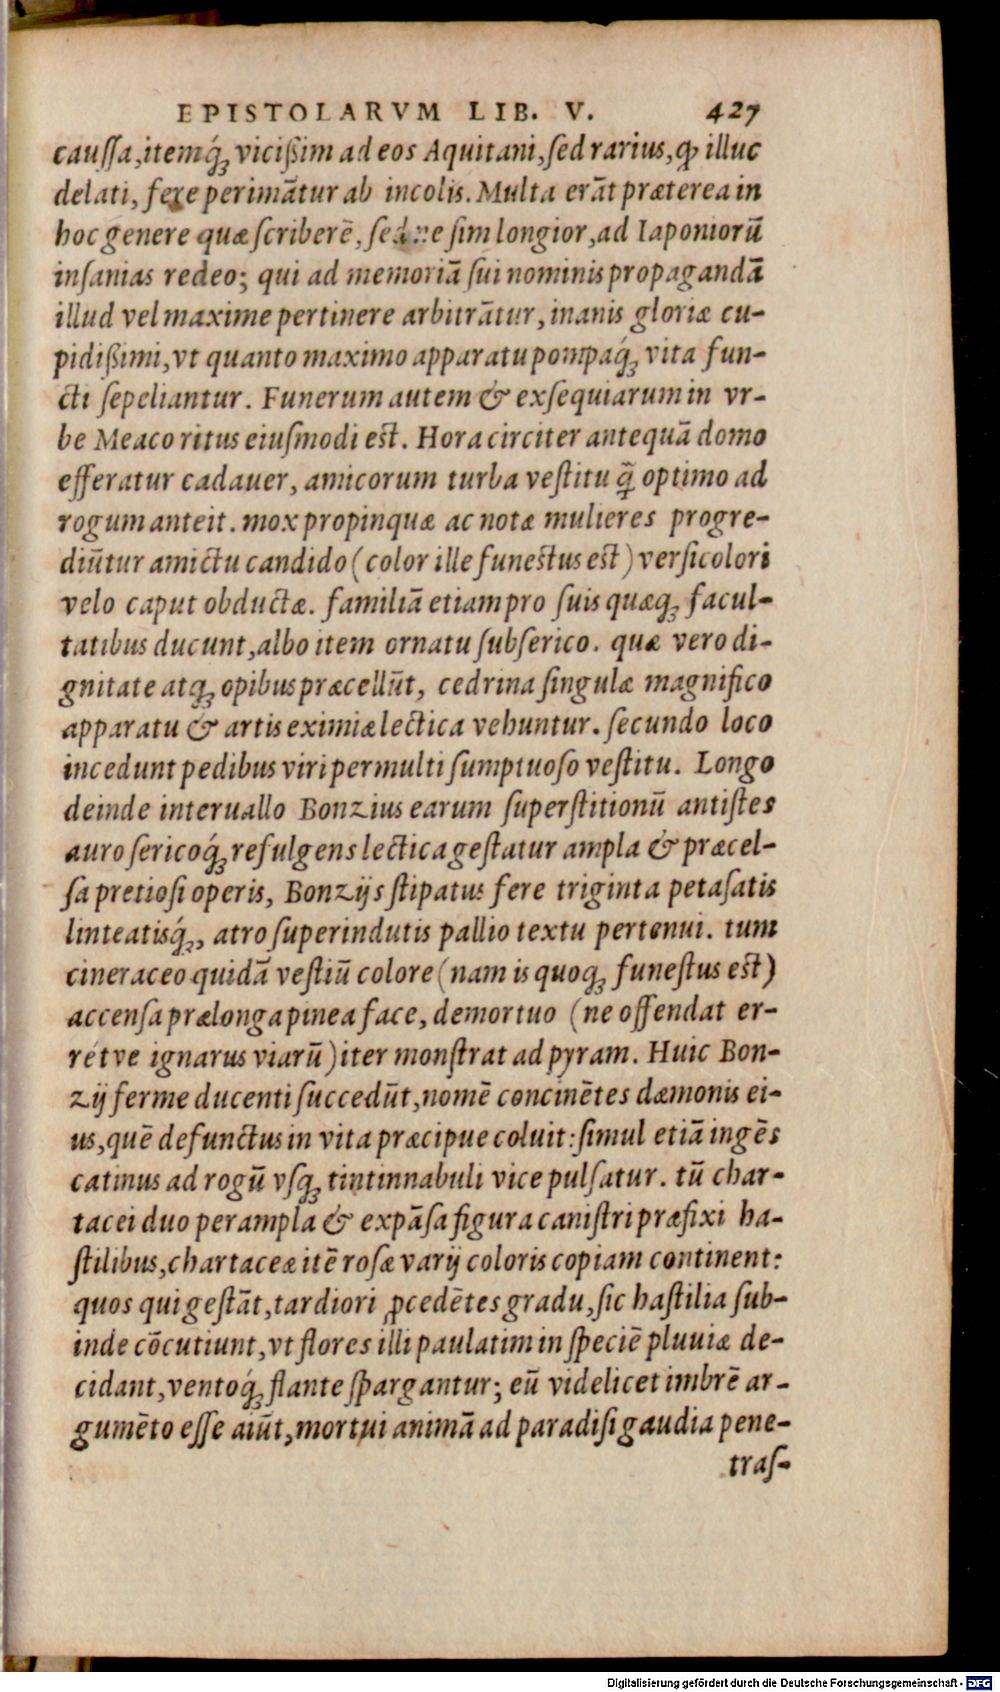 EPISTOLARVM LIB. V. 427
cauſſa, itemq́ꝫ viciſſim ad eos Aquitani, ſed rarius, ꝙ illuc
delati, fere perimãtur ab incolis. Multa erãt præterea in
hoc genere quæ ſcriberẽ, ſed ne ſim longior, ad Iaponiorũ
inſanias redeo; qui ad memoriã ſui nominis propagandã
illud vel maxime pertinere arbitrãtur, inanis gloriæ cu-
pidiſſimi, vt quanto maximo apparatu pompaq́ꝫ vita fun-
cti ſepeliantur. Funerum autem & exſequiarum in vr-
be Meaco ritus eiuſmodi est. Hora circiter antequã domo
efferatur cadauer, amicorum turba veſtitu q̃ optimo ad
rogum anteit. mox propinquæ ac notæ mulieres progre-
diũtur amictu candido (color ille funestus est) verſicolori
velo caput obductæ. familiã etiam pro ſuis quæqꝫ facul-
tatibus ducunt, albo item ornatu ſubſerico. quæ vero di-
gnitate atqꝫ opibus præcellũt, cedrina ſingulæ magnifico
apparatu & artis eximiæ lectica vehuntur. ſecundo loco
incedunt pedibus viri permulti ſumptuoſo veſtitu. Longo
deinde interuallo Bonzius earum ſuperſtitionũ antiſtes
auro ſericoq́ꝫ refulgens lectica geſtatur ampla & præcel-
ſa pretioſi operis, Bonzijs ſtipatus fere triginta petaſatis
linteatisq́ꝫ, atro ſuperindutis pallio textu pertenui. tum
cineraceo quidã veſtiũ colore (nam is quoqꝫ funeſtus est)
accenſa prælonga pinea face, demortuo (ne offendat er-
rétve ignarus viarũ) iter monſtrat ad pyram. Huic Bon-
zij ferme ducenti ſuccedũt, nomẽ concinẽtes dæmonis ei-
us, quẽ defunctus in vita præcipue coluit: ſimul etiã ingẽs
catinus ad rogũ vſqꝫ tintinnabuli vice pulſatur. tũ char-
tacei duo perampla & expãſa figura caniſtri præfixi ha-
ſtilibus, chartaceæ itẽ roſæ varij coloris copiam continent:
quos qui geſtãt, tardiori ꝓcedẽtes gradu, ſic haſtilia ſub-
inde cõcutiunt, vt flores illi paulatim in ſpeciẽ pluuiæ de-
cidant, ventoq́ꝫ flante ſpargantur; eũ videlicet imbrẽ ar-
gumẽto eſſe aiũt, mortui animã ad paradiſi gaudia pene-
traſ-
Digitalisierung gefördert durch die Deutsche Forschungsgemeinschaft - DFG